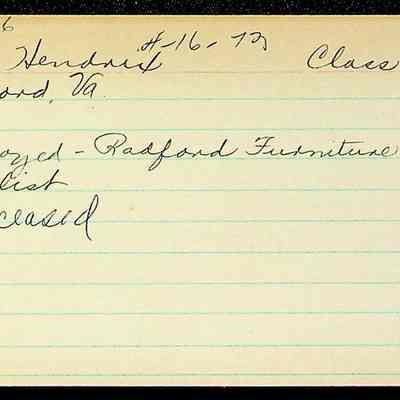 6
Hendrix 4-16-73 Class
ord, Va.
oyed - Radford Furniture
list
ceased